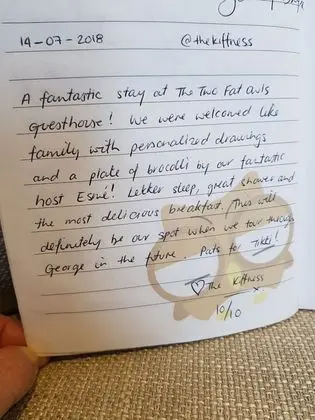 14-07-2018 @thekiffness
A fantastic stay at The Two Fat owls
Guesthouse! We were welcomed like
family with personalized drawings
and a plate of brocolli by our fantastic
host Esné! Lekker sleep, great shower and
the most delicious breakfast. This will
definitely be our spot when we tour through
George in the future. Pats for Tikki!
♡ The Kiffness x
10/10